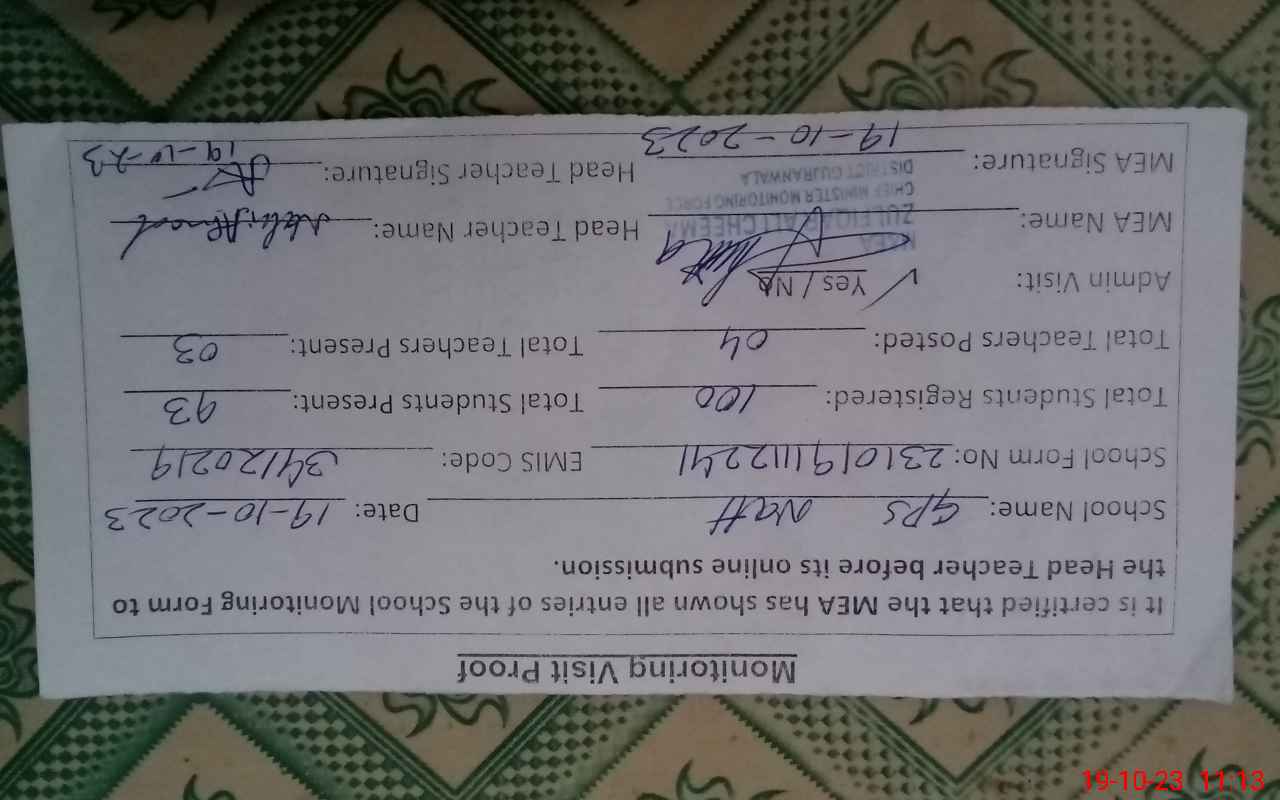 Monitoring Visit Proof
It is certified that the MEA has shown all entries of the School Monitoring Form to
the Head Teacher before its online submission.
School Name: GPS Natt Date: 19-10-2023
School Form No: 2310191112241 EMIS Code: 34120219
Total Students Registered: 100 Total Students Present: 93
Total Teachers Posted: 04 Total Teachers Present: 03
Admin Visit: Yes / No
MEA Name: Head Teacher Name:
MEA
ZULFIQAR ALI CHEEMA
CHIEF MINISTER MONITORING FORCE
DISTRICT GUJRANWALA
MEA Signature: 19-10-2023 Head Teacher Signature: 19-10-23
19-10-23 11:13